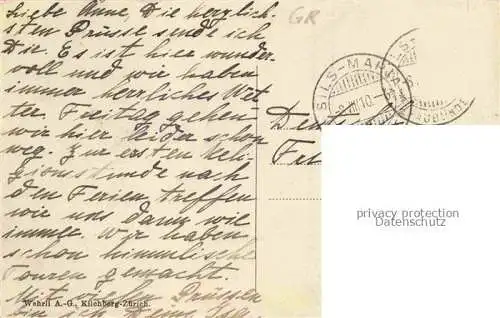 Liebe Änne, Die herzlich-
sten Grüsse sende ich
Die. Es ist hier wunder-
voll und wir haben
immer herrliches Wet-
ter. Freitag gehen
wir hier leider schon
weg. Zur ersten Reli-
gionsstunde nach
den Ferien treffen
wir uns dann wie
immer. Wir haben
schon himmlische
Touren gemacht.
Mit vielen Grüssen
bin ich Deine
Wehrli A.-G., Kilchberg-Zürich.
GR
SILS-MARIA
privacy protection
Datenschutz